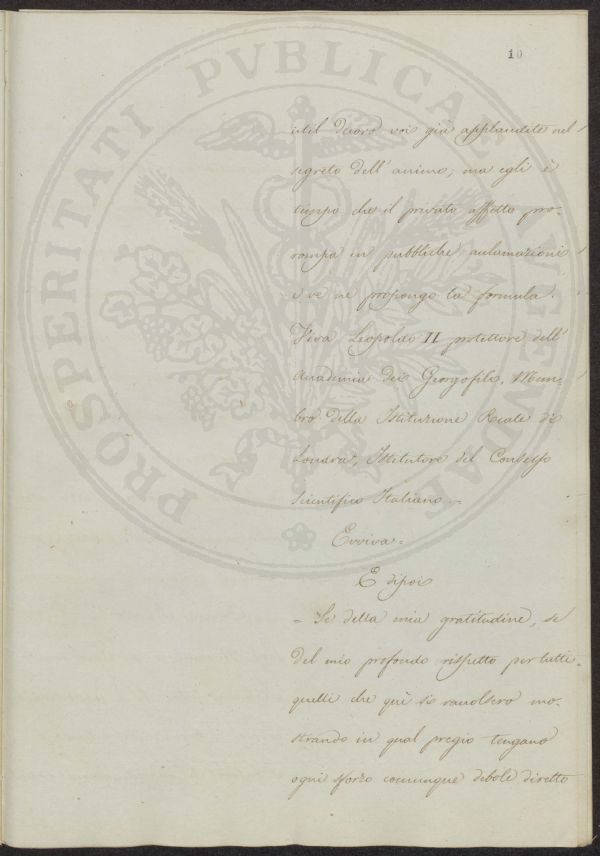 10
PROSPERITATI PVBLICAE AVGENDAE
util decoro voi già applaudite nel
segreto dell' animo; ma egli è
tempo che il privato affetto pro-
rompa in pubbliche acclamazioni
e ve ne propongo la formula.
Viva Leopoldo II protettore dell'
Accademia dei Georgofili, Mem-
bro della Istituzione Reale di
Londra, Istitutore del Consesso
scientifico Italiano.
Evviva=
E dipoi
= Se della mia gratitudine, se
del mio profondo rispetto per tutti
quelli che quì si raccolsero mo-
strando in qual pregio tengano
ogni sforzo comunque debole diretto